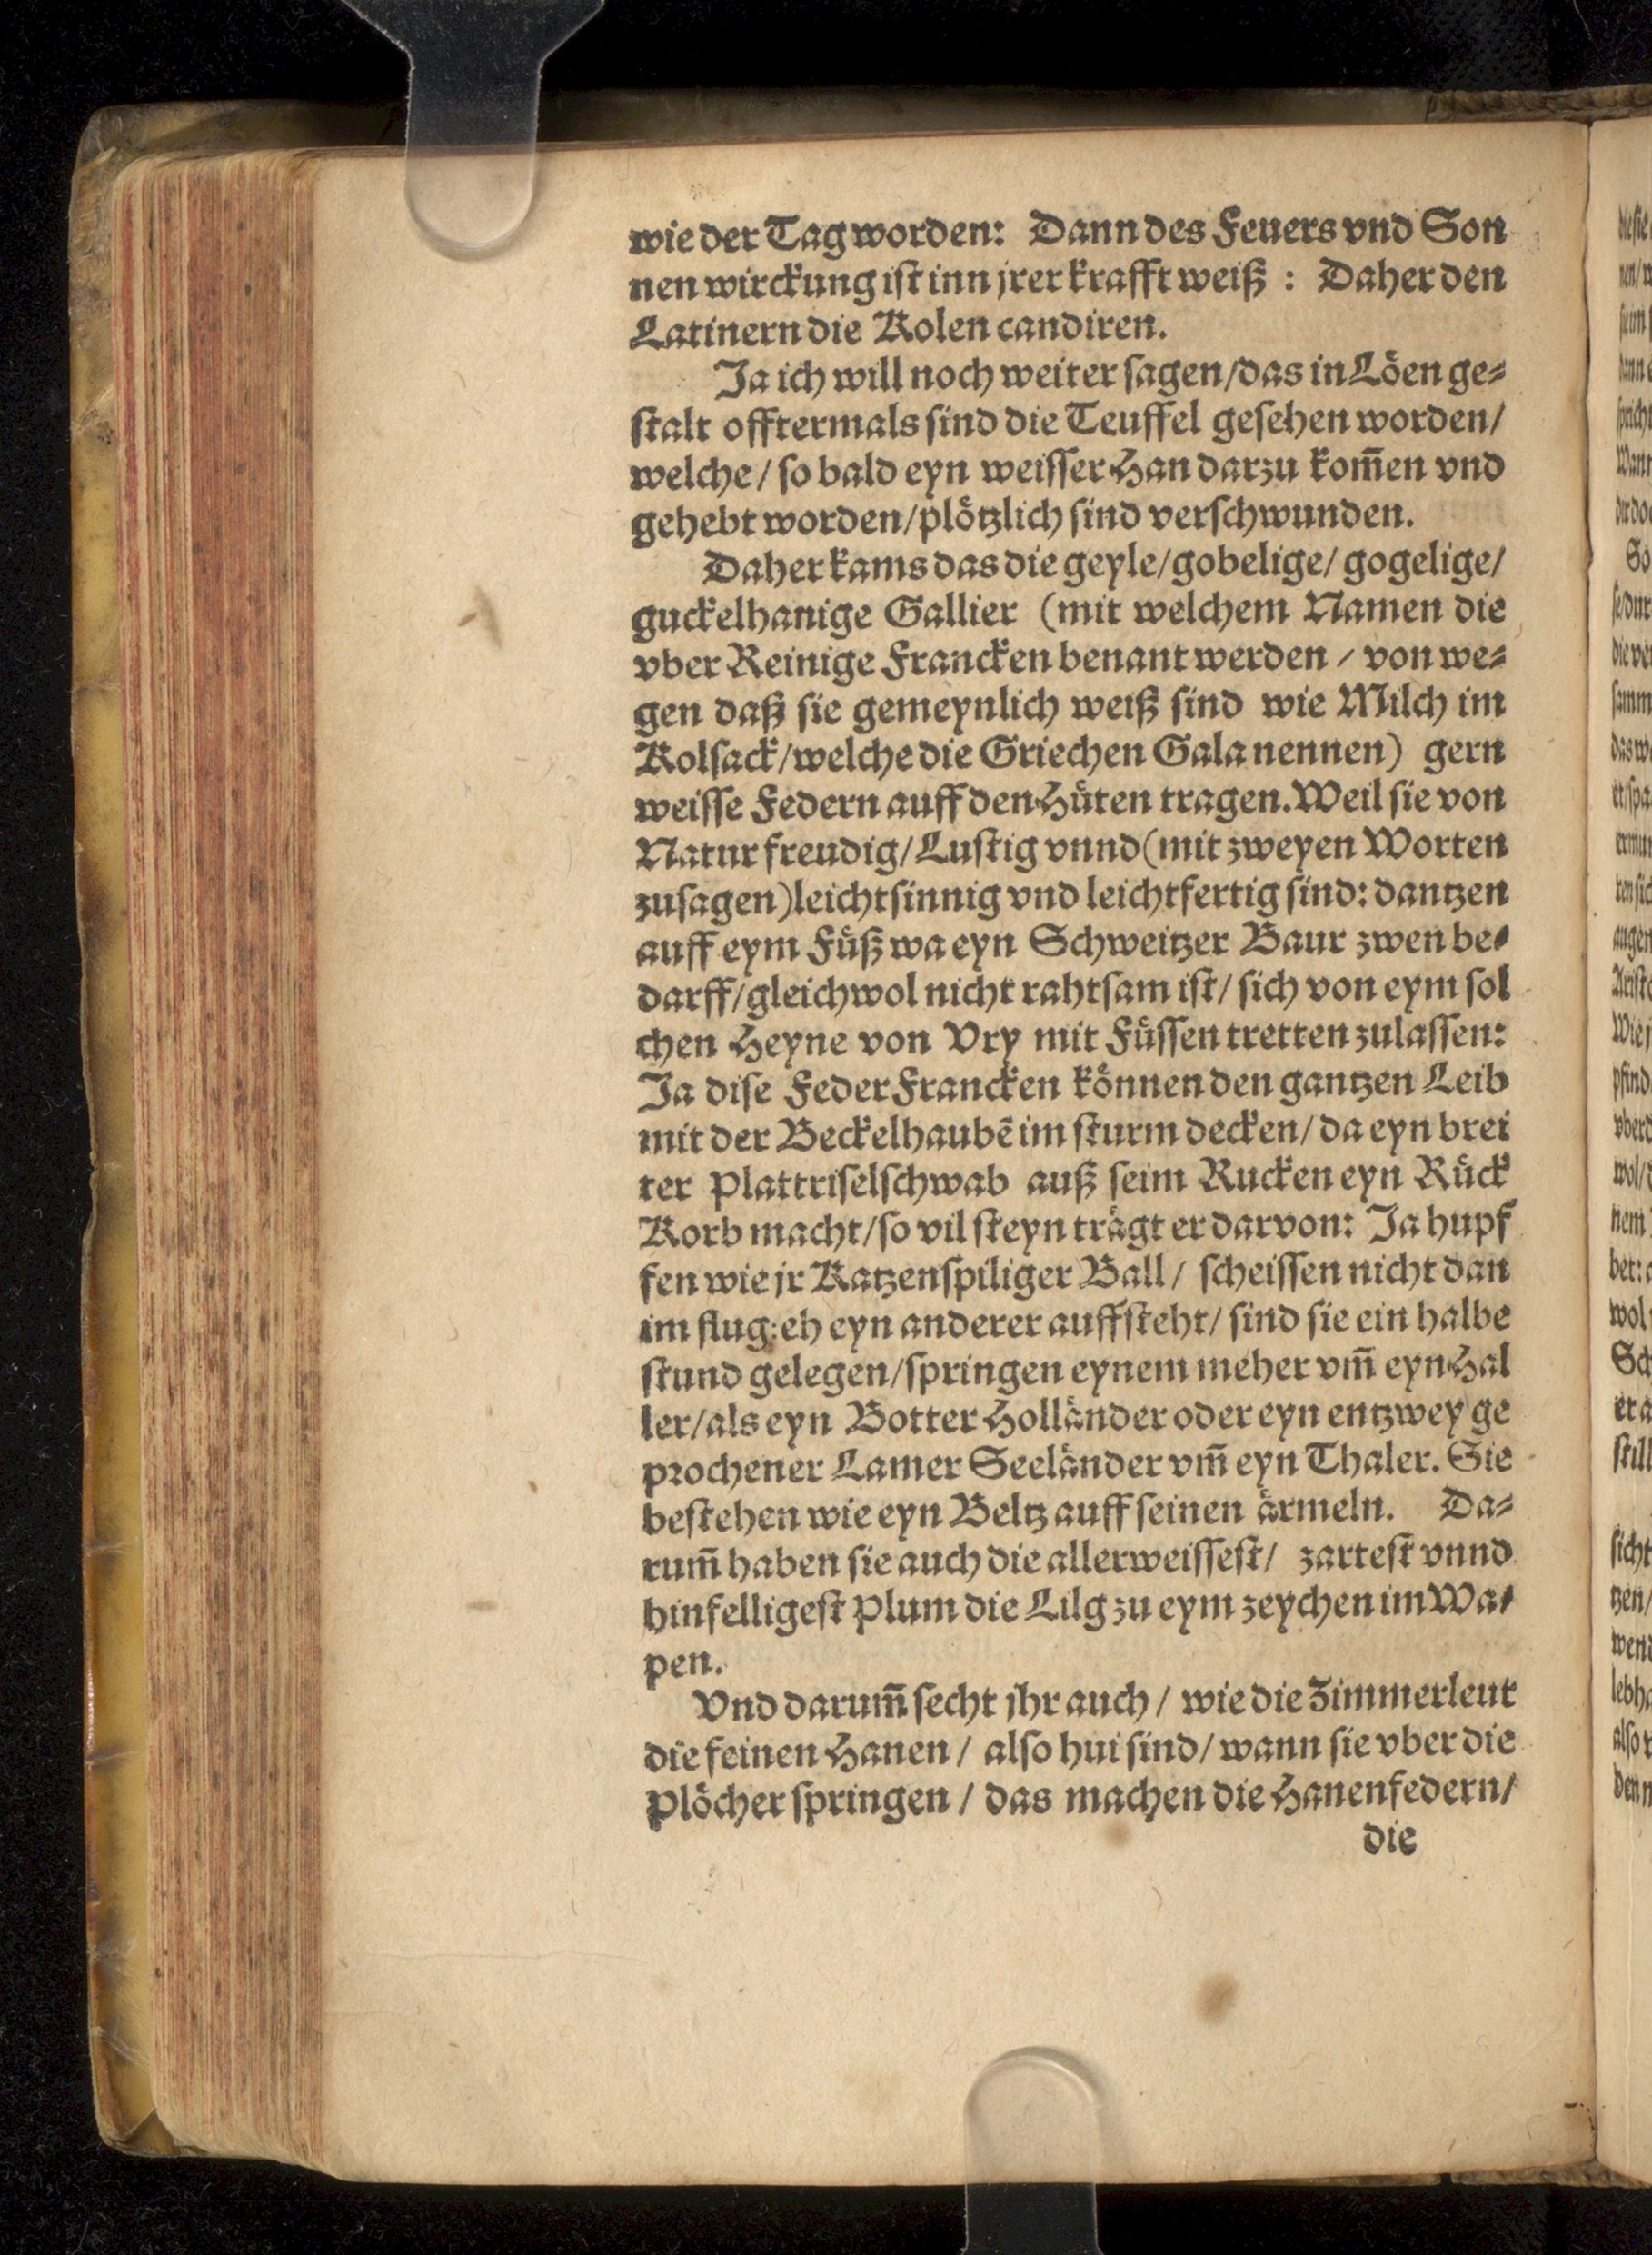 wie der Tag worden: Dann des Feuers vnd Son
nen wirckung ist inn jrer krafft weiß : Daher den
Latinern die Kolen candiren.
Ja ich will noch weiter sagen/das in Löen ge⸗
stalt offtermals sind die Teuffel gesehen worden/
welche/ so bald eyn weisser Han darzu kom̃en vnd
gehebt worden/plötzlich sind verschwunden.
Daher kams das die geyle/gobelige/ gogelige/
guckelhanige Gallier (mit welchem Namen die
vber Reinige Francken benant werden / von we⸗
gen daß sie gemeynlich weiß sind wie Milch im
Kolsack/welche die Griechen Gala nennen) gern
weisse Federn auff den Hüten tragen. Weil sie von
Natur freudig/Lustig vnnd (mit zweyen Worten
zusagen)leichtsinnig vnd leichtfertig sind: dantzen
auff eym Füß wa eyn Schweitzer Baur zwen be⸗
darff/gleichwol nicht rahtsam ist/ sich von eym sol
chen Heyne von Vry mit Füssen tretten zulassen:
Ja dise FederFrancken können den gantzen Leib
mit der Beckelhaubẽ im sturm decken/ da eyn brei
ter Plattriselschwab auß seim Rucken eyn Rück
Korb macht/so vil steyn trägt er darvon: Ja hupf
fen wie jr Katzenspiliger Ball/ scheissen nicht dan
im flug: eh eyn anderer auffsteht/ sind sie ein halbe
stund gelegen/springen eynem meher vm̃ eyn Hal
ler/als eyn Botter Holländer oder eyn entzwey ge
prochener Lamer Seeländer vm̃ eyn Thaler. Sie
bestehen wie eyn Beltz auff seinen ärmeln. Da⸗
rum̃ haben sie auch die allerweissest/ zartest vnnd
hinfelligest Plum die Lilg zu eym zeychen im Wa⸗
pen.
Vnd darum̃ secht jhr auch / wie die Zimmerleut
die feinen Hanen / also hui sind/ wann sie vber die
Plöcher springen / das machen die Hanenfedern/
die